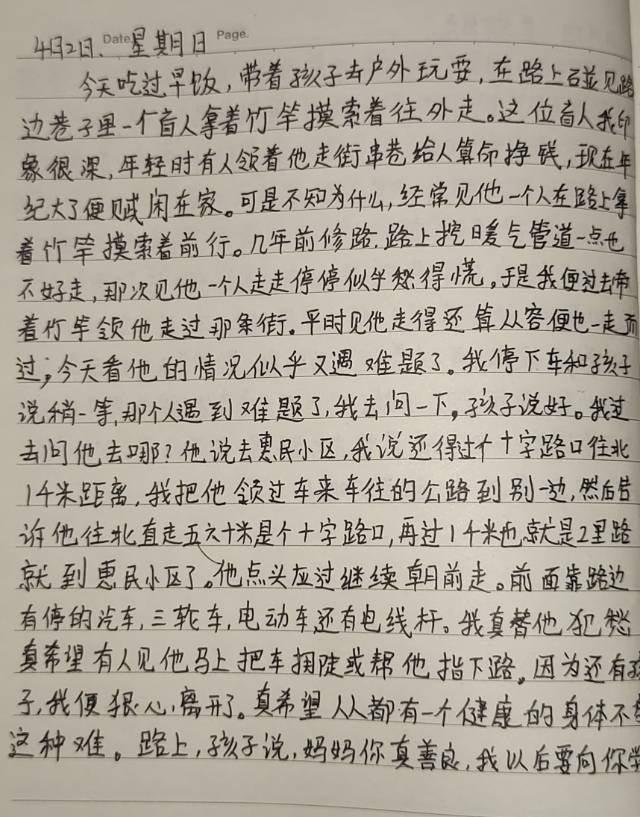 4月2日、Date 星期日 Page.
今天吃过早饭，带着孩子去户外玩耍，在路上碰见路
边巷子里一个盲人拿着竹竿摸索着往外走。这位盲人我印
象很深，年轻时有人领着他走街串巷给人算命挣钱，现在年
纪大了便赋闲在家。可是不知为什么，经常见他一个人在路上拿
着竹竿摸索着前行。几年前修路，路上挖暖气管道一点也
不好走，那次见他一个人走走停停似乎愁得慌，于是我便过去带
着竹竿领他走过那条街。平时见他走得还算从容便也一走而
过，今天看他的情况似乎又遇难题了。我停下车和孩子
说稍一等，那个人遇到难题了，我去问一下，孩子说好。我过
去问他去哪？他说去惠民小区，我说还得过个十字路口往北
1千米距离，我把他领过车来车往的公路到别一边，然后告
诉他往北直走五六十米是个十字路口，再过1千米也就是2里路
就到惠民小区了。他点头应过继续朝前走。前面靠路边
有停的汽车，三轮车，电动车还有电线杆。我真替他犯愁
真希望有人见他马上把车挪陡或帮他指下路。因为还有孩
子，我便狠心离开了。真希望人人都有一个健康的身体不
这种难。路上，孩子说，妈妈你真善良，我以后要向你学